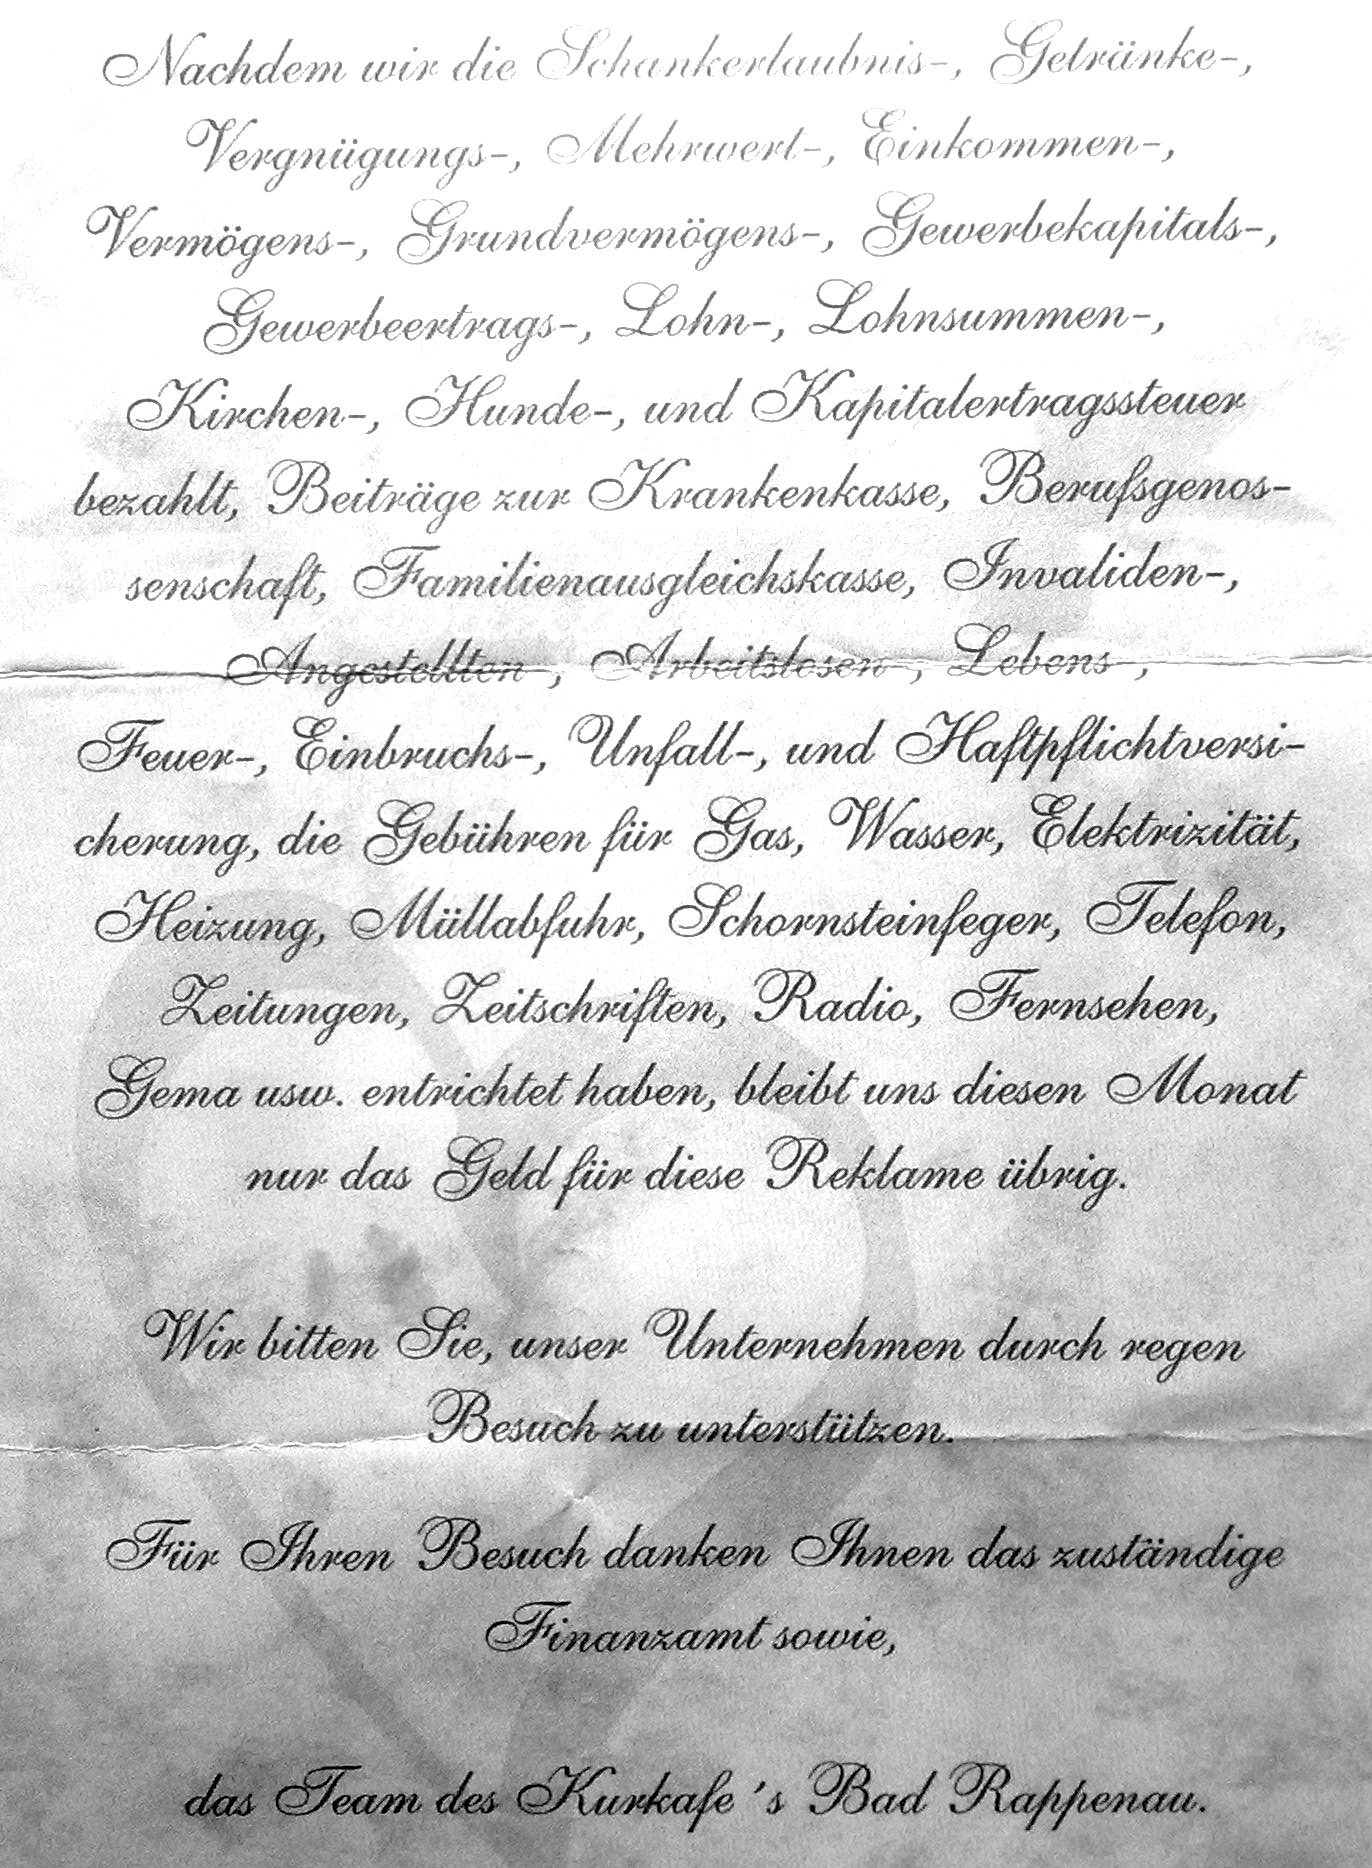 Nachdem wir die Schankerlaubnis-, Getränke-,
Vergnügungs-, Mehrwert-, Einkommen-,
Vermögens-, Grundvermögens-, Gewerbekapitals-,
Gewerbeertrags-, Lohn-, Lohnsummen-,
Kirchen-, Hunde-, und Kapitalertragssteuer
bezahlt, Beiträge zur Krankenkasse, Berufsgenos-
senschaft, Familienausgleichskasse, Invaliden-,
Angestellten-, Arbeitslosen-, Lebens-,
Feuer-, Einbruchs-, Unfall-, und Haftpflichtversi-
cherung, die Gebühren für Gas, Wasser, Elektrizität,
Heizung, Müllabfuhr, Schornsteinfeger, Telefon,
Zeitungen, Zeitschriften, Radio, Fernsehen,
Gema usw. entrichtet haben, bleibt uns diesen Monat
nur das Geld für diese Reklame übrig.
Wir bitten Sie, unser Unternehmen durch regen
Besuch zu unterstützen.
Für Ihren Besuch danken Ihnen das zuständige
Finanzamt sowie,
das Team des Kurkafe 's Bad Rappenau.